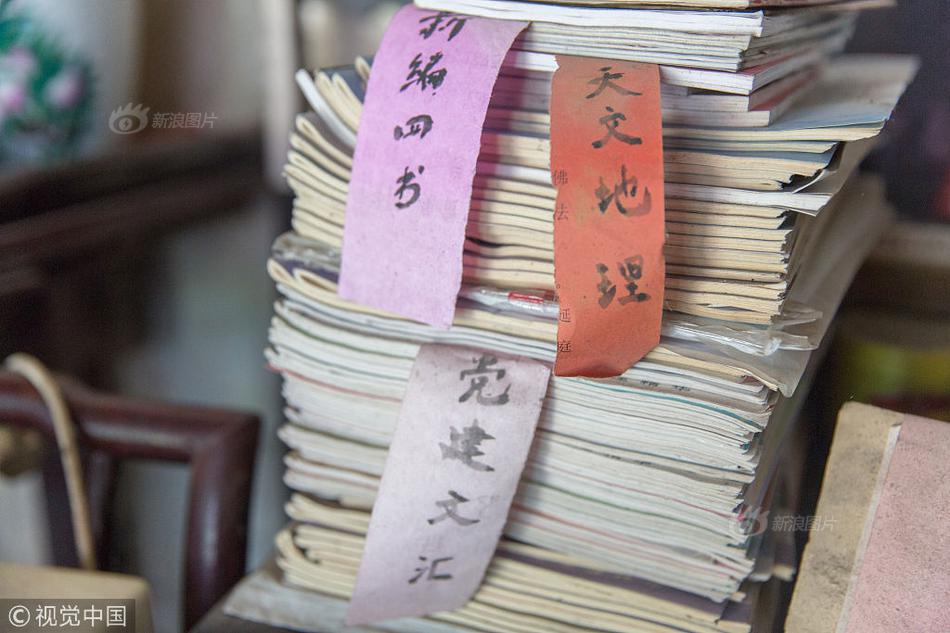 新编四书
天文地理
佛法
延庭
党建文汇
新浪图片
新浪图片
©视觉中国